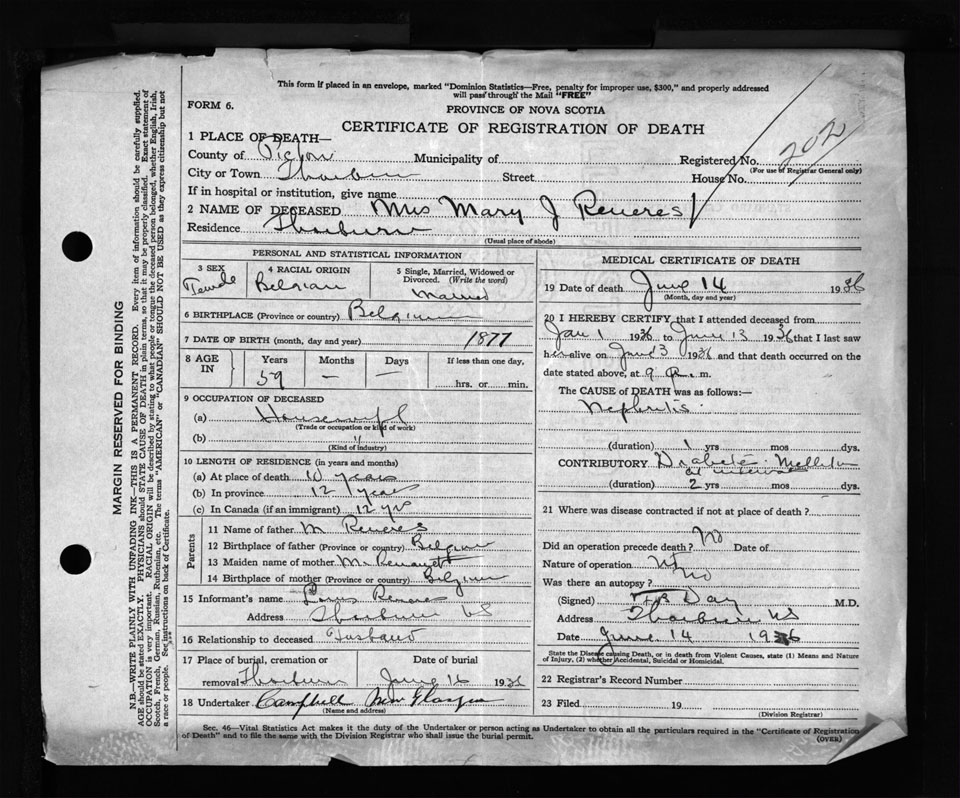 This form if placed in an envelope, marked "Dominion Statistics—Free, penalty for improper use, $300," and properly addressed
will pass through the Mail "FREE"
FORM 6.
PROVINCE OF NOVA SCOTIA
CERTIFICATE OF REGISTRATION OF DEATH
202
1 PLACE OF DEATH—
County of Pictou Municipality of Registered No.
(For use of Registrar General only)
City or Town Thorburn Street House No.
If in hospital or institution, give name
2 NAME OF DECEASED Mrs Mary J Reneres
Residence Thorburn
(Usual place of abode)
PERSONAL AND STATISTICAL INFORMATION
3 SEX Female
4 RACIAL ORIGIN Belgian
5 Single, Married, Widowed or Divorced. (Write the word) Married
6 BIRTHPLACE (Province or country) Belgium
7 DATE OF BIRTH (month, day and year) 1877
8 AGE IN Years Months Days If less than one day,
59 — — hrs. or min.
9 OCCUPATION OF DECEASED
(a) Housewife
(Trade or occupation or kind of work)
(b) "
(Kind of industry)
10 LENGTH OF RESIDENCE (in years and months)
(a) At place of death 10 years
(b) In province 12 years
(c) In Canada (if an immigrant) 12 yrs
Parents
11 Name of father M Reneres
12 Birthplace of father (Province or country) Belgium
13 Maiden name of mother M
14 Birthplace of mother (Province or country) Belgium
15 Informant's name Louis Reneres
Address Thorburn NS
16 Relationship to deceased Husband
17 Place of burial, cremation or Date of burial
removal Thorburn June 16 1936
18 Undertaker Campbell New Glasgow
(Name and address)
MEDICAL CERTIFICATE OF DEATH
19 Date of death June 14 1936
(Month, day and year)
20 I HEREBY CERTIFY that I attended deceased from
Jan 1 1936 to June 13 1936 that I last saw
her alive on June 13 1936 and that death occurred on the
date stated above, at 9 m.
The CAUSE of DEATH was as follows:—
Nephritis
(duration) 1 yrs mos dys.
CONTRIBUTORY Diabetes Mellitus
(duration) 2 yrs mos dys.
21 Where was disease contracted if not at place of death?
Did an operation precede death? No Date of
Nature of operation
Was there an autopsy? No
(Signed) Day M.D.
Address Thorburn NS
Date June 14 1936
State the Disease causing Death, or in death from Violent Causes, state (1) Means and Nature
of Injury, (2) whether Accidental, Suicidal or Homicidal.
22 Registrar's Record Number
23 Filed 19
(Division Registrar)
Sec. 46—Vital Statistics Act makes it the duty of the Undertaker or person acting as Undertaker to obtain all the particulars required in the "Certificate of Registration
of Death" and to file the same with the Division Registrar who shall issue the burial permit.
(OVER)
MARGIN RESERVED FOR BINDING
N.B.—WRITE PLAINLY WITH UNFADING INK—THIS IS A PERMANENT RECORD. Every item of information should be carefully supplied.
AGE should be stated EXACTLY. PHYSICIANS should STATE CAUSE OF DEATH in plain terms, so that it may be properly classified. Exact statement of
OCCUPATION is very important. RACIAL ORIGIN will be described by stating to what people or tongue the deceased person belonged, whether English, Irish,
Scotch, French, German, Russian, Ruthenian, etc. The terms "AMERICAN" or "CANADIAN" SHOULD NOT BE USED as they express citizenship but not
a race or people. See instructions on back of Certificate.